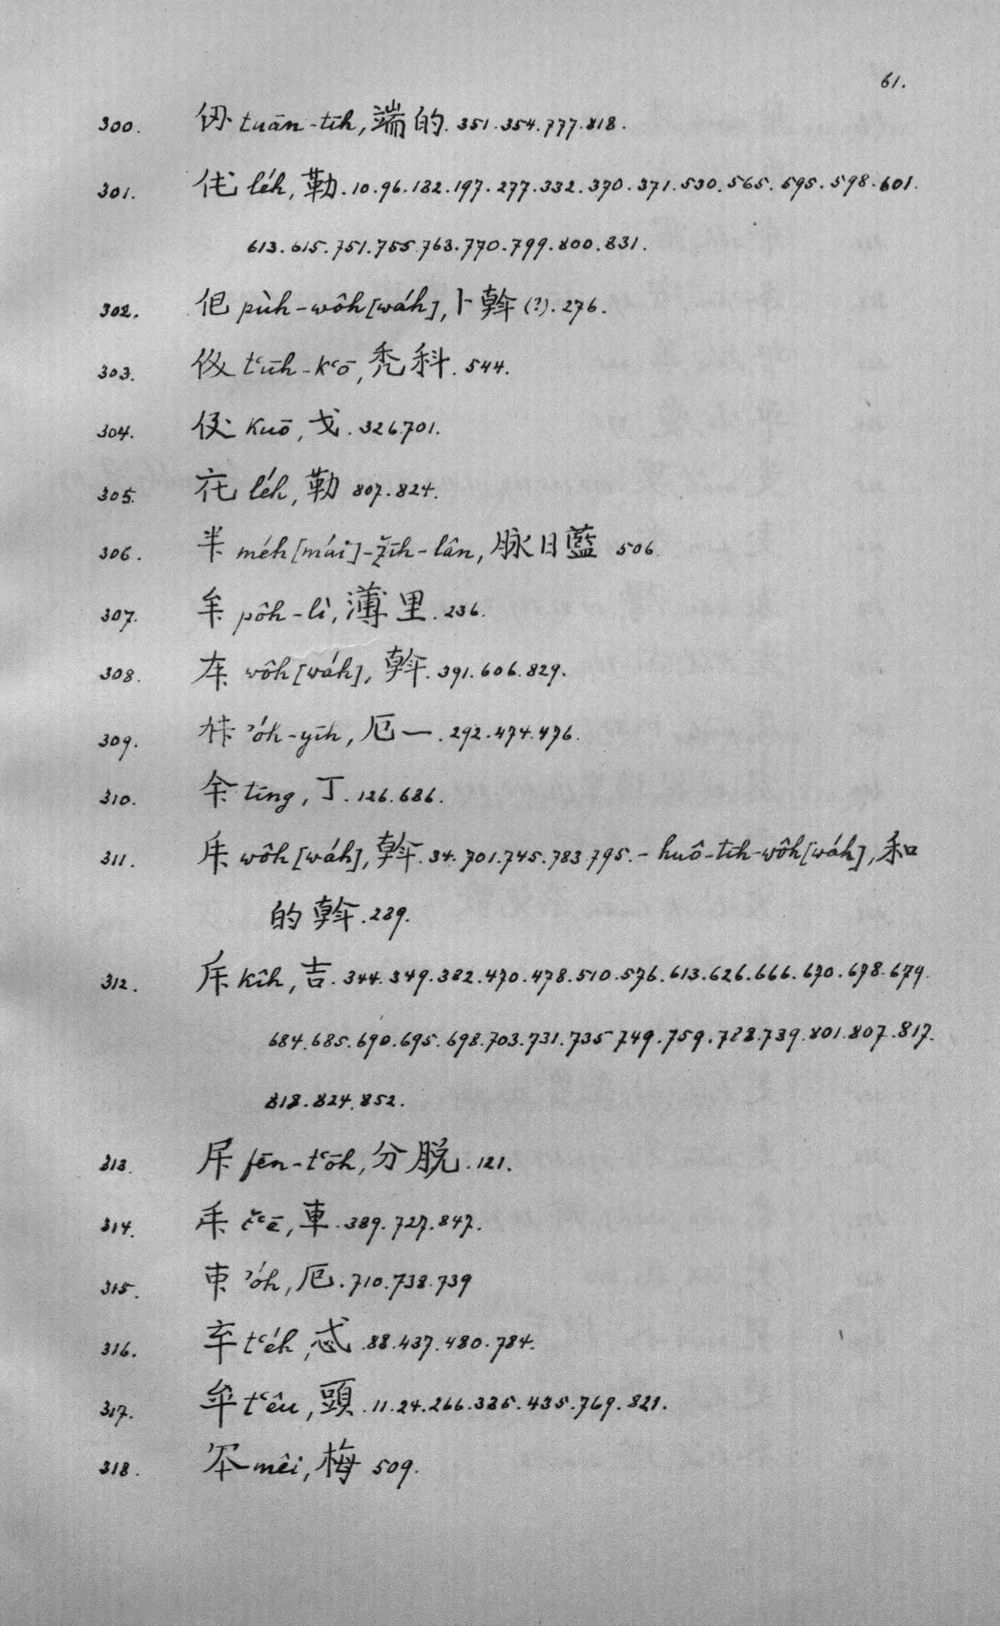 61.
300. tuān-tīh, 端的. 351.354.777.818.
301. léh, 勒. 10.96.182.197.277.332.370.371.530.565.595.598.601.
613.615.751.755.763.770.799.800.831.
302. pùh-wôh[wáh], 卜斡(?). 276.
303. tʿūh-kʿō, 禿科. 544.
304. kuō, 戈. 326.701.
305. léh, 勒 807.824.
306. méh[mái]-žīh-lân, 脉日藍 506.
307. pôh-lì, 薄里. 236.
308. wôh[wáh], 斡. 391.606.829.
309. ʾóh-yīh, 厄一. 292.474.476.
310. tīng, 丁. 126.686.
311. wôh[wáh], 斡. 34.701.745.783.795. – huô-tīh-wôh[wáh], 和
的斡. 289.
312. kīh, 吉. 344.349.382.470.478.510.576.613.626.666.670.678.679.
684.685.690.695.698.703.731.735 749.759.788.739.801.807.817.
818.824.852.
313. fēn-tʿōh, 分脱. 121.
314. čʿē, 車. 389.727.847.
315. ʾóh, 厄. 710.738.739
316. tʿéh, 忒. 88.437.480.784.
317. tʿêu, 頭. 11.24.266.335.435.769.821.
318. mêi, 梅 509.